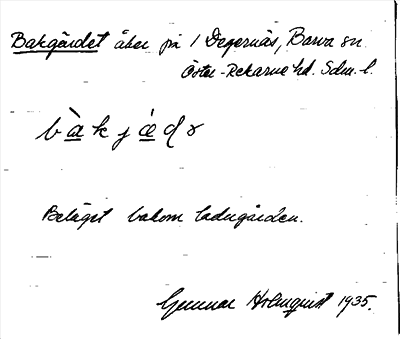 Bakgärdet åker på 1 Degernäs, Barva sn
Öster-Rekarne hd. Sdm. l.
Beläget bakom ladugården.
Gunnar Holmquist 1935.